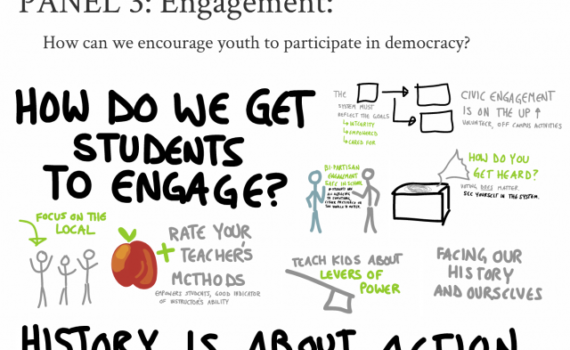 PANEL 3: Engagement:
How can we encourage youth to participate in democracy?
HOW DO WE GET
STUDENTS
TO ENGAGE?
THE
SYSTEM MUST
REFLECT THE GOALS
↳ INTEGRITY
↳ EMPOWERED
↳ CARED FOR
CIVIC ENGAGEMENT
IS ON THE UP ↑
VOLUNTEER, OFF CAMPUS ACTIVITIES
BI-PARTISAN
ENGAGEMENT
HOW DO YOU
GET HEARD?
VOTING DOES MATTER.
SEE YOURSELF IN THE SYSTEM.
FOCUS ON THE
LOCAL
+ RATE YOUR
TEACHER'S
METHODS
EMPOWERS STUDENTS, GOOD INDICATOR
OF INSTRUCTOR'S ABILITY
TEACH KIDS ABOUT
LEVERS OF
POWER
FACING OUR
HISTORY
AND OURSELVES
HISTORY IS ABOUT ACTION